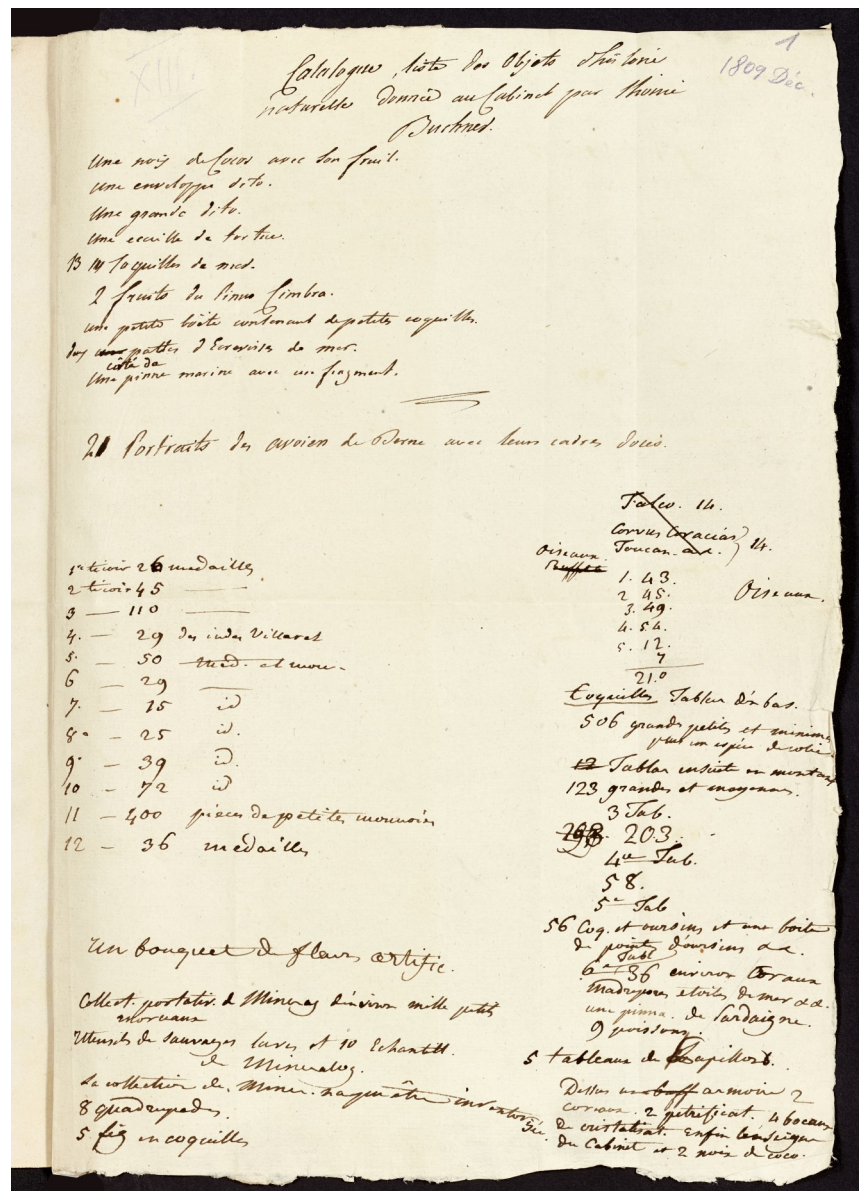 XIII.
1
1809 Déc.
Catalogue, liste des Objets d'histoire
naturelle donnée au Cabinet par
Buchner.
une noix de Cocos avec son fruit.
une enveloppe dito.
une grande dito.
une ecaille de tortue.
13 14 Coquilles de mer.
2 fruits du Pinus Cimbra.
une petite boëte contenant de petites coquilles.
des une pattes d'Ecrevisses de mer.
coté de
une pinne marine avec un fragment.
21 Portraits des avoien de Berne avec leurs cadres dorés.
1er tiroir 26 medailles
2 tiroir 45 ——
3 — 110 ——
4. — 29 des indes Villaret
5. — 50 med. et mon.
6 — 29 ——
7. — 15 id
8° — 25 id.
9. — 39 id.
10 — 72 id
11 — 400 pieces de petites monnoies
12 — 36 medailles
Un bouquet de fleurs artific.
Collect. portativ. de Mineraz d'environ mille petits
morceaux
Utensils de sauvages laves et 10 Echantill.
de Mineralog.
La collection de Miner. inventoriée.
8 quadrupedes.
5 fig en coquilles
Falco. 14.
Corvus Coracias
Toucan. 14.
Oiseaux
Buffet
1. 43.
2 45.
3. 49.
4. 54.
5. 12.
7
21.0
Oiseaux.
Coquilles Tablar d'en bas.
506 grands petits et minimes
plus un espece de
12 Tablar ensuite en montant
123 grandes et moyennes.
3 Tab.
203.
4me Tab.
58.
5e Tab
56 Coq. et oursins et une boite
de points d'oursins &&.
6e Tabl
36 environ Coraux
Madrepores etoiles de mer &&.
une pinna. de Sardaigne.
9 poissons.
5 tableaux de Papillons.
Dessus un buff armoire 2
coraux. 2 petrificat. 4 bocaux
2 cristalisat. Enfin l'enseigne
du Cabinet et 2 noix de coco.